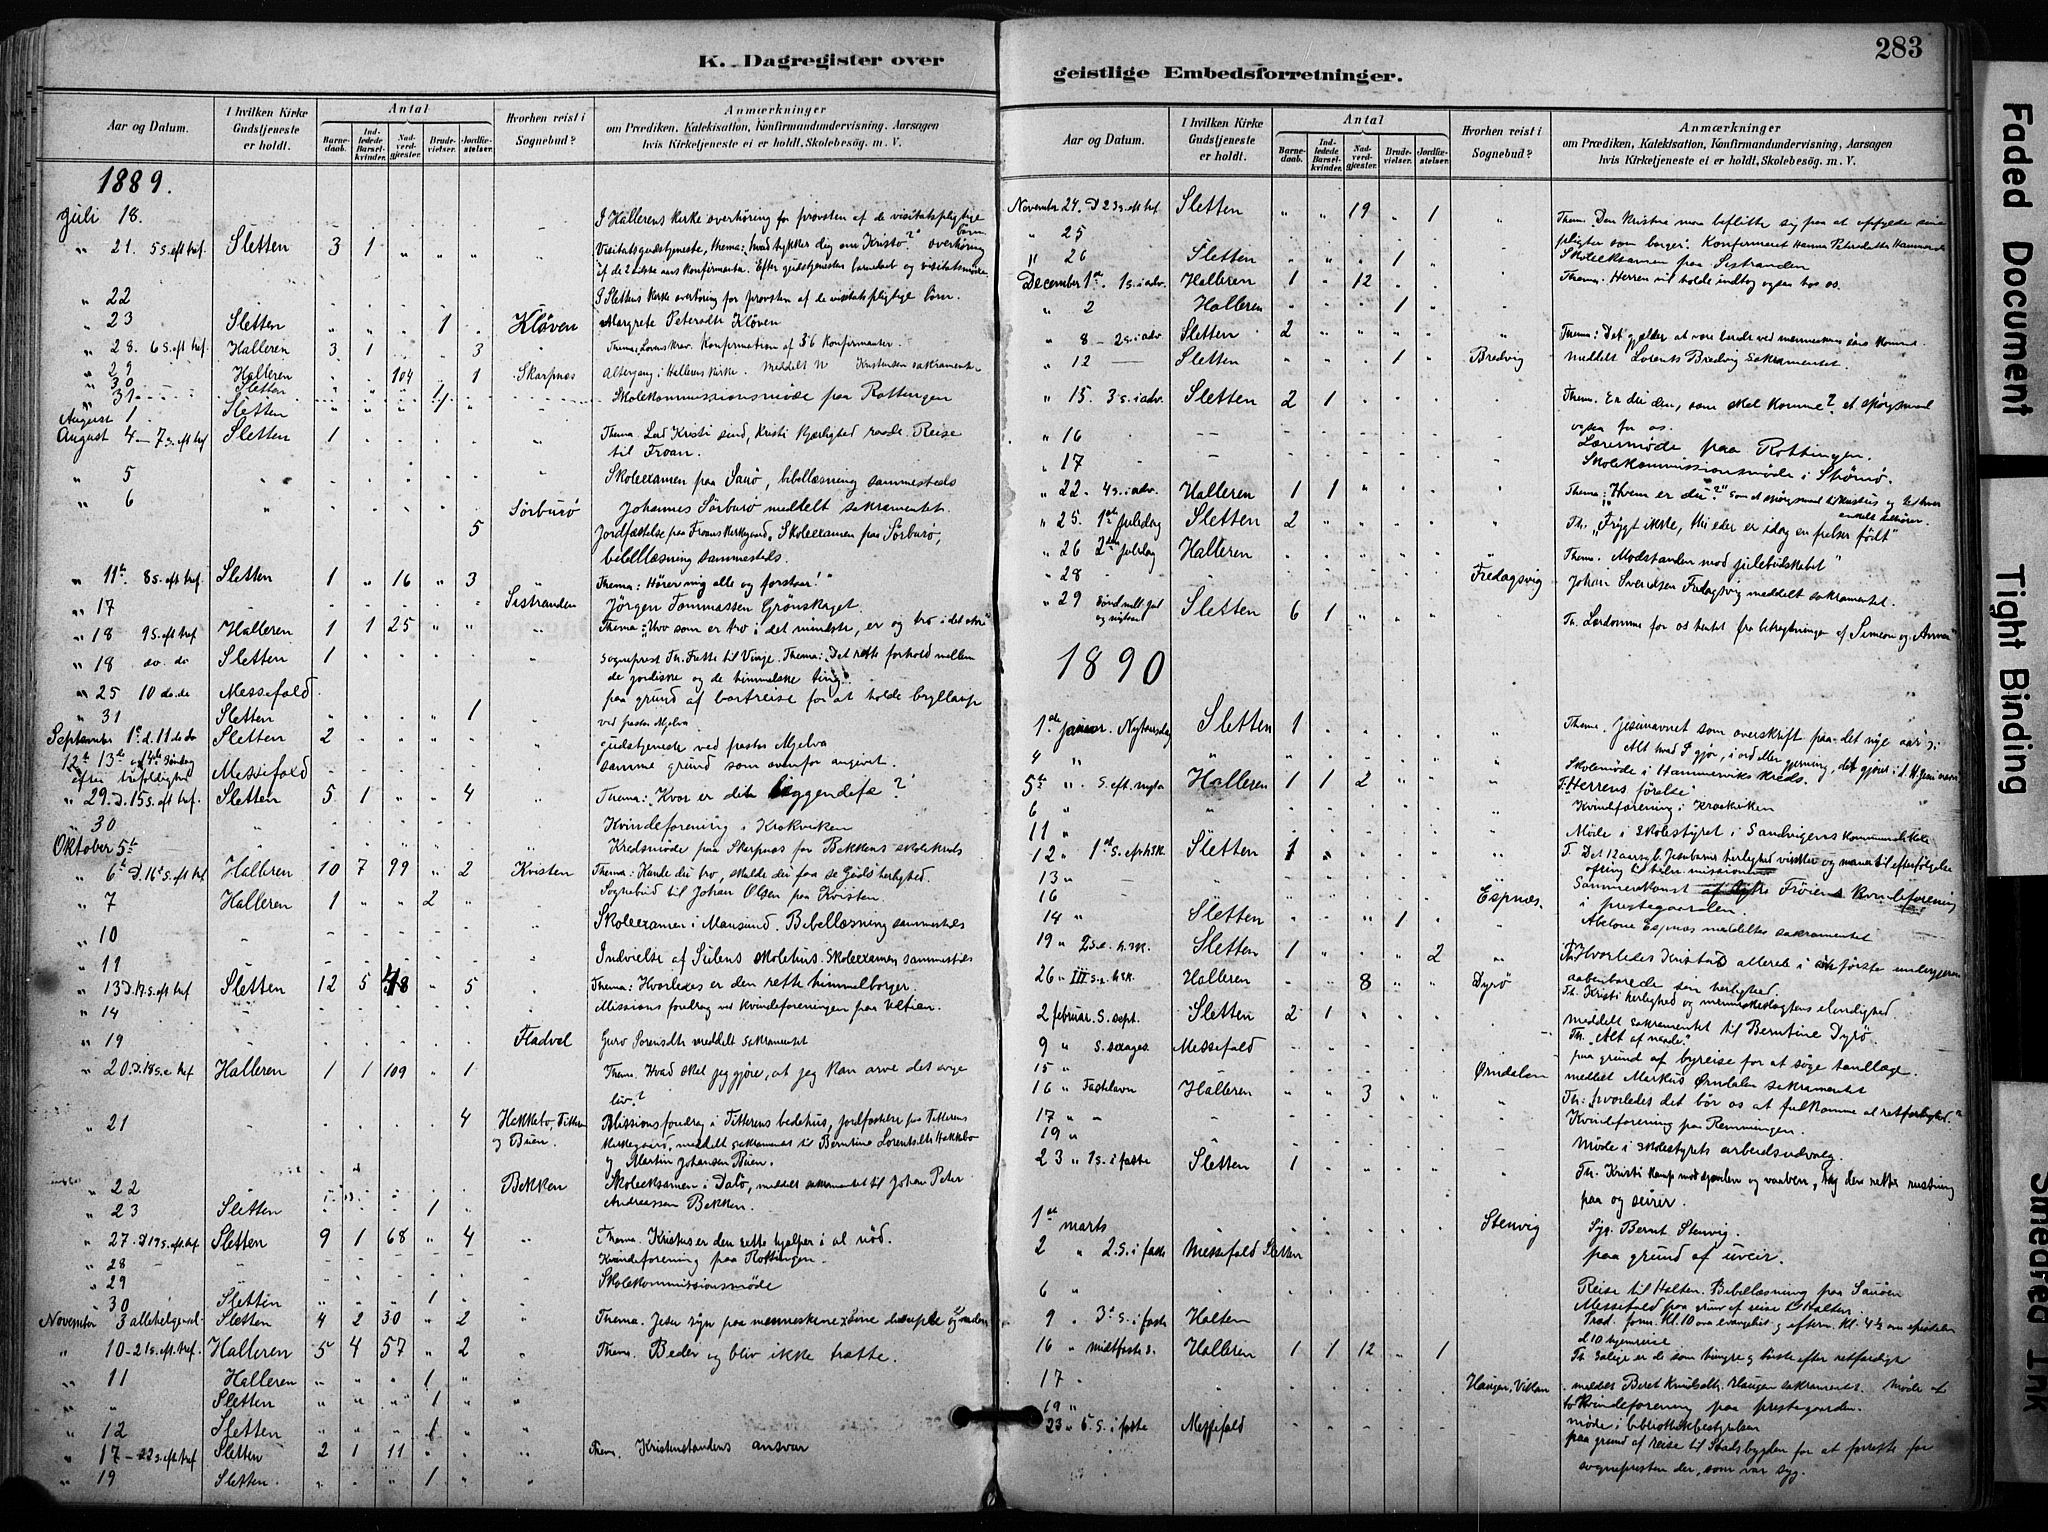 K. Dagregister over
Aar og Datum.
I hvilken Kirke Gudstjeneste er holdt.
Antal
Barnedaab.
Indledede Barselkvinder.
Nadverdgjæster.
Brudevielser.
Jordfæstelser.
Hvorhen reist i Sognebud?
Anmærkninger
om Prædiken, Katekisation, Konfirmandundervisning, Aarsagen
hvis Kirketjeneste ei er holdt, Skolebesøg. m. V.
1889.
Juli 18. I Hallerens kirke overhøring for provsten af de visitatspligtige børn
" 21. 5 s. eft. tref. Sletten 3 1 " " " Visitatsgudstjeneste, thema: hvad tykker dig om Kristo? overhøring
af de 2 sidste aars konfirmanter. Efter gudstjenesten barnedaab og visitatsmøde.
" 22 I Slettens kirke overhøring for provsten af de visitatspligtige børn.
" 23 Sletten " " " 1 " Kløven Margrete Petersdtr Kløven
" 28. 6 s. eft. tref. Halleren 3 1 3 Konfirmation af 36 Konfirmanter.
" 29 Halleren 104 1 Skarpnæs Altergang i Hallerens kirke. Meddelt N Kristensen sakramentet
" 30 Sletten
" 31 Skolekommissionsmøde paa Rottingen
August 1. Sletten
August 4 - 7 s. eft tref Sletten 1 Thema. Lad Kristi sind, Kristi kjærlighed raade. Reise
til Froan.
" 5 Skoleexamen paa Sauø, bibellæsning sammesteds
" 6 Sørburø Johannes Sørburø meddelt sakramentet.
5 Jordfæstelse paa Froans Kirkegaard, Skoleexamen paa Sørburø,
bibellæsning sammesteds.
" 11te 8 s. eft. tref. Sletten 1 " 16 " 3 Thema: Hører mig alle og forstaar!"
" 17 Sistranden Jørgen Tommassen Grønskaget.
" 18 9 s. eft tref Halleren 1 1 25 " " Thema: Hvo som er tro i det mindste, er og tro i det store"
" 18 do. do Sletten 1 Sogneprest Th. Fætte til Vinje. Thema: Det rette forhold mellem
de jordiske og de himmelske ting.
" 25 10 do. de Messefald. paa grund af bortreise for at holde bryllup
" 31 Sletten 1 ved pastor Mjelva
September 1e d. 11 do do Sletten 2 gudstjeneste ved pastor Mjelva
12te 13te og 14te Søndag efter trefoldighed Messefald samme grund som ovenfor angivet.
" 29. D. 15 s. eft. tref. Sletten 5 1 " " 4 Thema: Hvor er dit liggendefæ?
" 30 Kvindeforening i Krokviken
Oktober 5te Kredsmøde paa Skarpnæs for Bekkens skolekreds
" 6te D. 16 s. eft tref Halleren 10 7 99 " 2 Kvisten Thema: Kande du tro, skulde du faa se Guds herlighed.
Sognebud til Johan Olsen paa Kvisten.
" 7 Halleren 1 " " 2
" 10 Skoleexamen i Mausund. Bibellæsning sammesteds
" 11 Indvielse af Sulens skolehus. Skoleexamen sammesteds
" 13 D. 17 s. eft tref Sletten 12 5 48 " 5 Thema: Hvorledes er den rette himmelborger.
" 14 Missions foredrag ved kvindeforeningen paa Uttian.
" 19 Fladval Guro Sørensdtr meddelt sakramentet
" 20. D. 18 s. e tref Halleren 1 1 109 " 1 Thema. Hvad skal jeg gjøre, at jeg kan arve det evige
liv?
" 21 4 Hakkebo, Titteren og Buen. Missionsforedrag i Titterens bedehus, jordfæstelser paa Titterens
Kirkegaard, meddelt sakramentet til Berntine Lorentsdtr Hakkebo
og Martin Johansen Buen.
" 22 Bekken Skoleeksamen i Dalø, meddelt sakramentet til Johan Peter
" 23 Sletten 1 Andreassen Bekken.
" 27. D 19 s. eft. tref. Sletten 9 1 68 " 4 Thema. Kristus er den rette hjælper i al nød.
" 28 Kvindeforening paa Rottingen.
" 29 Skolekommissionsmøde
" 30 Sletten 1
November 3 allehelgensd. Sletten 4 2 30 " 2 Thema. Jesu syn paa menneskene, sine disciple og verden
" 10 - 21 s. eft. tref. Halleren 5 4 57 " 2 Thema. Beder og bliv ikke trætte.
" 11 Halleren " " " 1 "
" " Sletten " " " 1 "
" 12 Sletten 1
" 17 - 22 s. eft tref Sletten 2 1 11 " Thema. Kristenstandens ansvar
" 19 Sletten 1
283
geistlige Embedsforretninger.
Aar og Datum.
I hvilken Kirke Gudstjeneste er holdt.
Antal
Barnedaab.
Indledede Barselkvinder.
Nadverdgjæster.
Brudevielser.
Jordfæstelser.
Hvorhen reist i Sognebud?
Anmærkninger
om Prædiken, Katekisation, Konfirmandundervisning, Aarsagen
hvis Kirketjeneste ei er holdt, Skolebesøg. m. V.
November 24. D 23 s. eft tref Sletten " " 19 " 1 Thema. Den kristne maa beflitte sig paa at opfylde sine
" 25 pligter som borger. Konfirmeret Hanna Petersdatter Hammervik
" 26 Sletten 1 Skoleeksamen paa Sistranden
December 1ste. 1 s. i adv. Halleren 1 " 12 Thema. Herren vil holde indtog ogsaa hos os.
" 2 Halleren 1
" 8 - 2 s. i adv. Sletten 2 Thema: Det gjælder at være beredt ved menneskens søns komme.
" 12 Sletten 1 Bredvig meddelt Lorents Bredvig sakramentet.
" 15. 3 s. i adv. Sletten 2 1 Thema. Er du den, som skal komme? et spørgsmaal
ogsaa for os.
" 16 Lærermøde paa Rottingen.
" 17 Skolekommissionsmøde i Strømø.
" 22. 4 s. i adv. Halleren 1 1 Thema: Hvem er du?"
" 25. 1ste juledag Sletten 2 Th. "Frygt ikke, thi eder er idag en frelser født"
" 26 2den juledag Halleren Thema. Modstanden mod julebudskabet"
" 28 Fredagsvig Johan Svendsen Fredagsvig meddelt sakramentet.
" 29 Sønd. mell. jul og nytaar Sletten 6 1 Th. Lærdomme for os hentet fra betragtningen af Simeon og Anna"
1890
1ste januar. Nytaarsdag Sletten 1 Thema. Jesunavnet som overskrift paa det nye aar:
4 " Alt hvad I gjør, i ord eller gjerning, det gjøres i d. H. Jesu navn
5te " S. eft. nytaar Halleren 1 1 2 Skolemøde i Hammerviks Kreds.
T: Herrens frelse"
6 " Kvindeforening i Krokviken
11 " Møde i skolestyret i Sandvigens kommunelokale
12 " 1ste S. eft h3K. Sletten 1 T. Det 12 aarsg. b. Jesubarns herlighed
13 " ofring til mission
16 Sammenkomst Frøiens kvindeforening
i prestegaarden.
14 " Sletten 1 Espnæs. Abelone Espnæs meddeltes sakramentet
19 " 2 s. e. h. 3K. Sletten 1 2 Th Hvorledes Kristus allerede i sit første undergjerning
aabenbarede sin herlighed
26 " III s. e. h. 3K. Halleren 8 Dyrø Th. Kristi herlighed og menneskeslægtens elendighed.
meddelt sakramentet til Berntine Dyrø.
2 februar. S. sept. Sletten 2 1 Th. "Alt af naade."
9 " S. sexages. Messefald paa grund af byreise for at søge tandlæge.
15 " Ørndalen meddelt Markus Ørndalen sakramentet
16 " Fastelavn Halleren 3 Th: hvorledes det bør os at fulkomme al retfærdighed."
17 " Kvindeforening paa Remmingen.
19 " Møde i skolestyrets arbeidsudvalg.
23 " 1 s. i faste Sletten 1 Th. Kristi kamp mod djævelen og vaaben, tag den rette rustning
paa og seirer.
1ste marts Stenvig Syg. Bernt Stenvig.
2 " 2. S. i faste Messefald Sletten paa grund af uveir.
6 " Reise til Halten. Bibellæsning paa Sauøen
9 " 3de S. i faste Halten Messefald paa grund af reise til Halten.
Præd. form. Kl. 10 ova evangeliet og efterm. Kl. 4½ ova epistelen
d. 10 hjemreise
16 " midtfaste s. Halleren 1 1 12 " 1 Th Salige er de som hungre og tørste efter retfærdighed
17 " Haugen, Uttian meddelt Beret Knudsdtr. Haugen sakramentet. Møde af
kvindeforening paa prestegaarden.
19 " møde i bibliothekbestyrelsen
23 " 5. S. i faste Messefald paa grund af reise til Stadsbygden for at forrette for
sognepresten der, som var syg.
Faded Document
Tight Binding
Smeared Ink